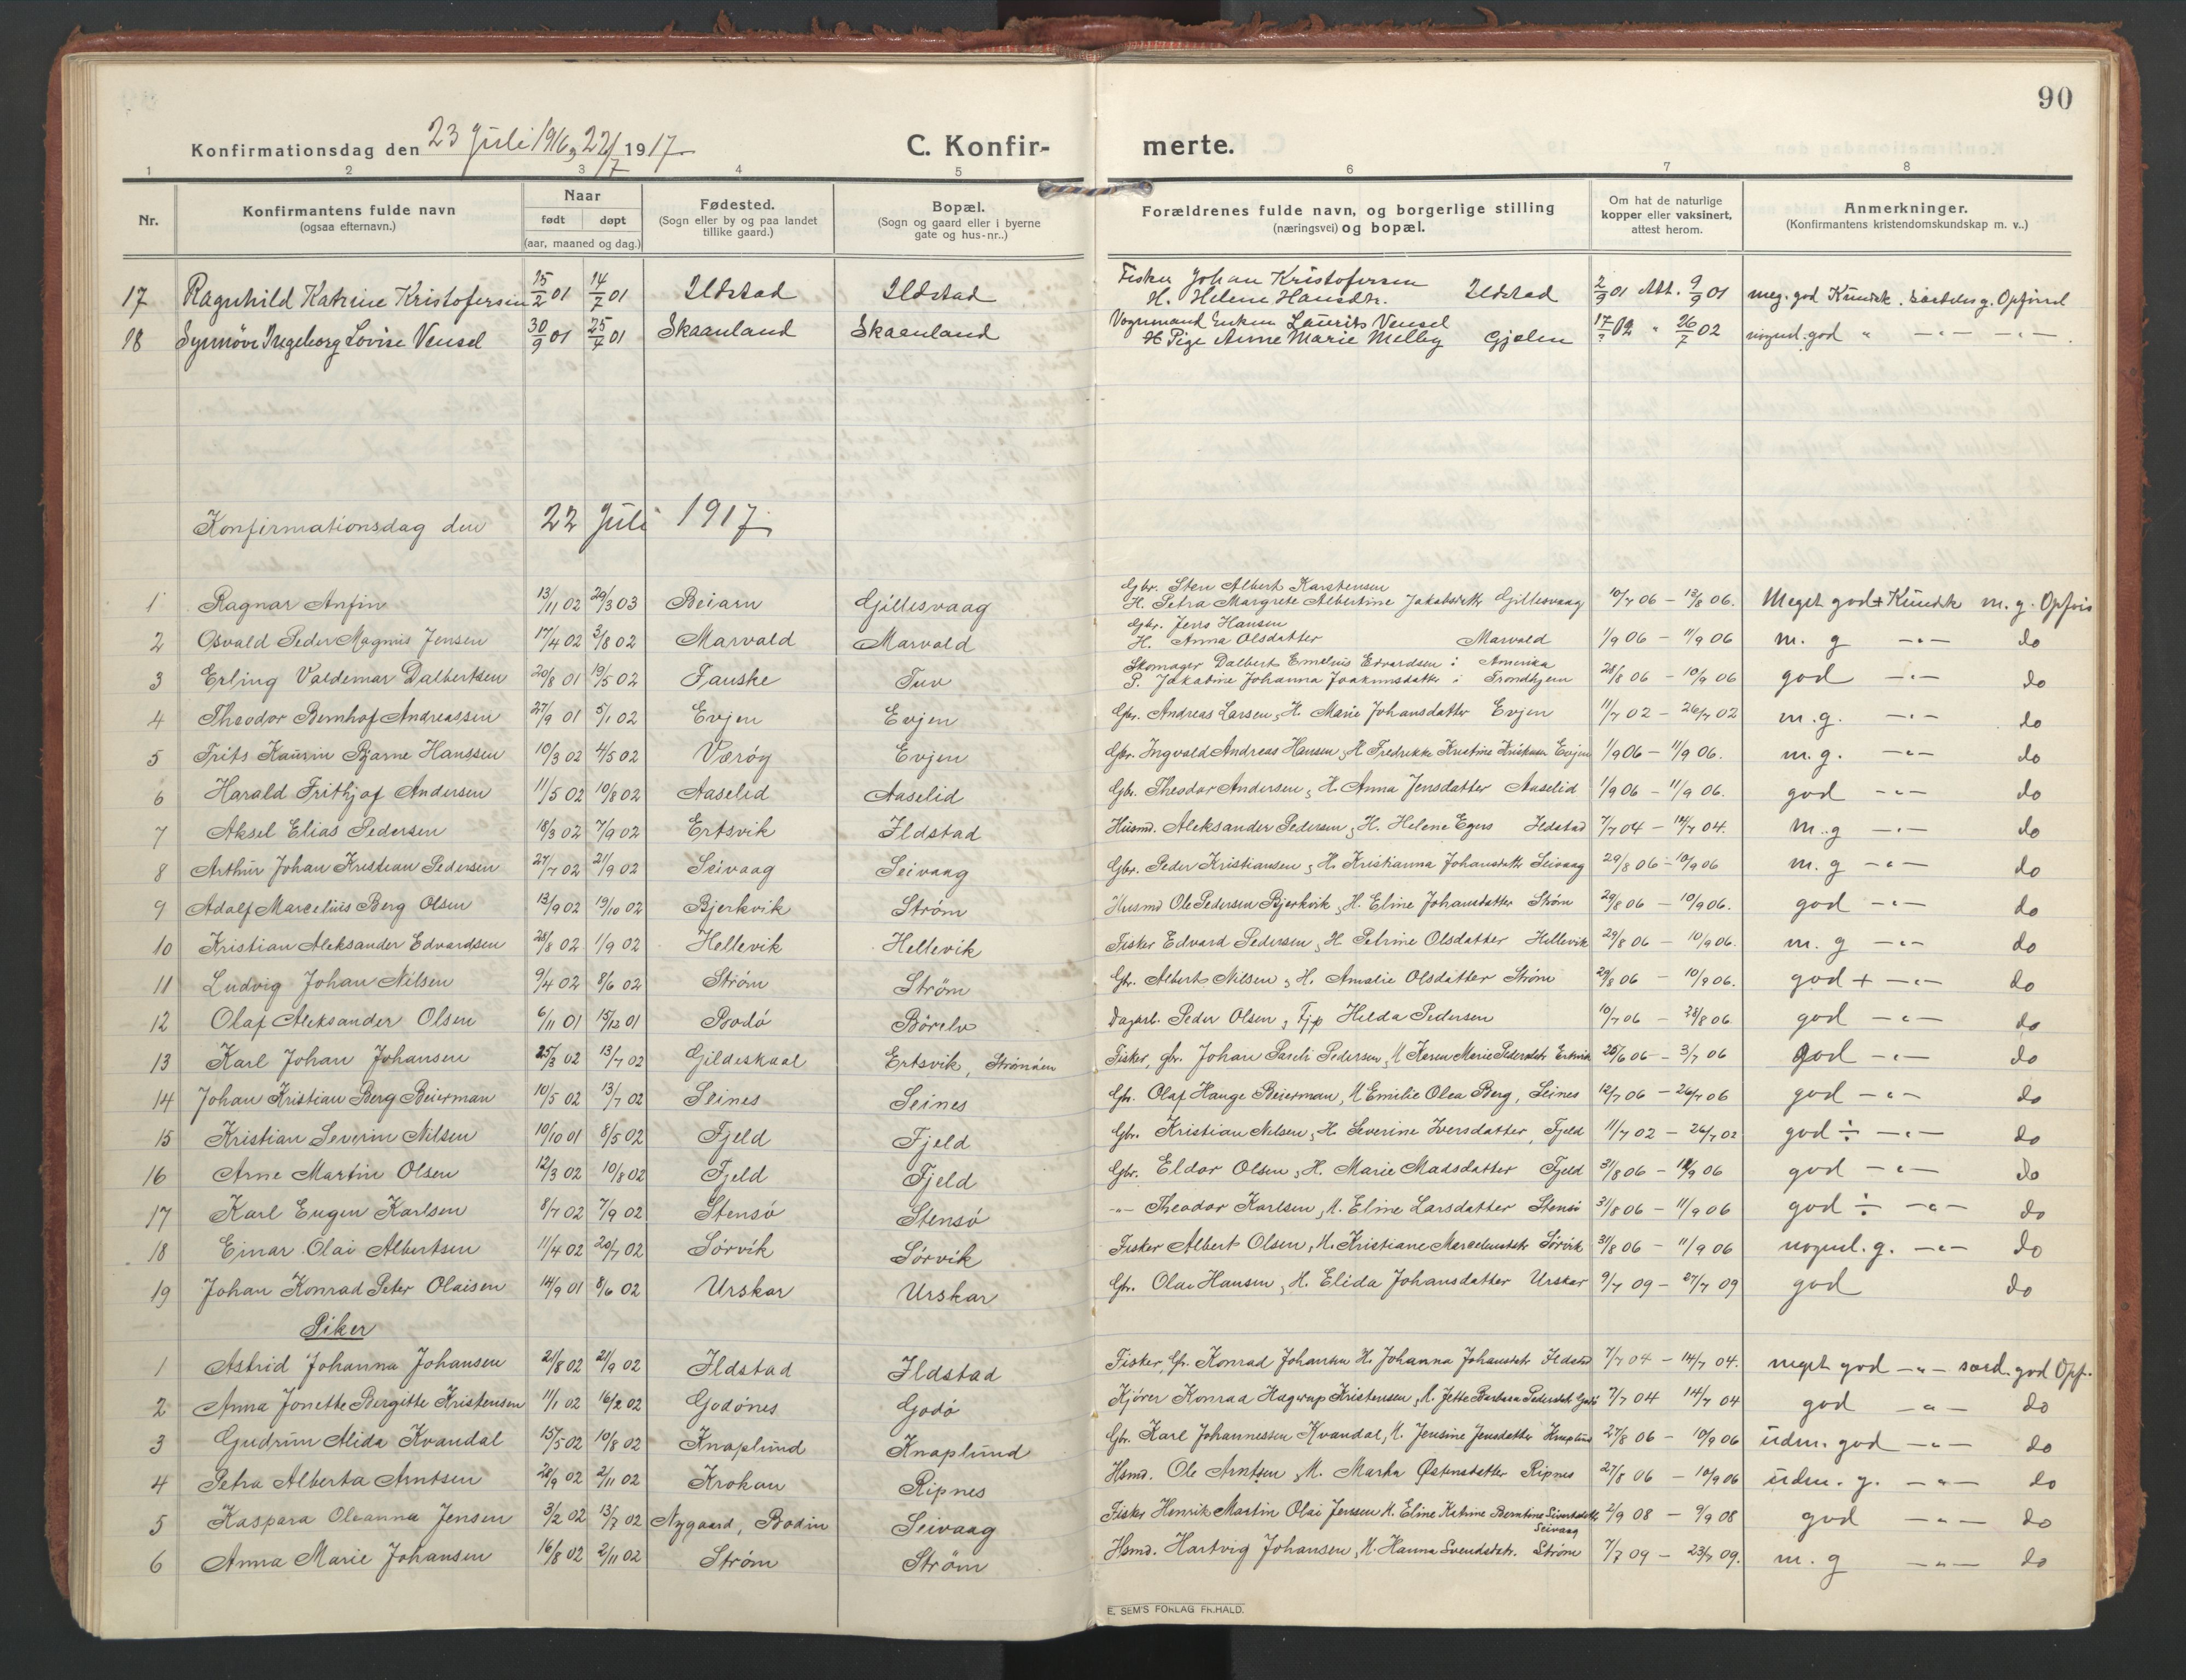 90
Konfirmationsdag den 23 Juli 1916, 22/7 1917
C. Konfirmerte.
1 2 3 4 5 6 7 8
Nr. Konfirmantens fulde navn (ogsaa efternavn.) Naar født døpt (aar, maaned og dag.) Fødested. (Sogn eller by og paa landet tillike gaard.) Bopæl. (Sogn og gaard eller i byerne gate og hus-nr..) Forældrenes fulde navn, og borgerlige stilling (næringsvei) og bopæl. Om hat de naturlige kopper eller vaksinert, attest herom. Anmerkninger. (Konfirmantens kristendomskundskap m. v..)
17 Ragnhild Katrine Kristofersen 15/2 01 14/7 01 Ildstad Ildstad Fisker Johan Kristofersen H. Helene Hansdtr. Ildstad 2/9 01 Att. 9/9 01 meg. god Kundsk. særdeles g. Opførsel
18 Synnøve Ingeborg Lovise Vensel 30/9 01 25/7 01 Skaanland Skaanland Vogmand Enkem Laurits Vensel H Pige Anne Marie Melby Gjelen 17/7 02 " 26/7 02 nogenl. god " -"- -"-
Konfirmationsdag den 22 Juli 1917
1 Ragnar Anfin 13/11 02 29/3 03 Beiarn Gillesvaag Gbr. Sten Albert Karstensen H. Petra Margrete Albertine Jakobsdtr Gillesvaag 10/7 06 - 13/8 06. Meget god + Kundsk m. g. Opførs
2 Osvald Peder Magnus Jensen 17/4 02 3/8 02 Marvald Marvald Gbr. Jens Hansen H. Anna Olsdatter Marvald 1/9 06 - 11/9 06 m. g -"- do
3 Erling Valdemar Dalbertsen 20/8 01 19/5 02 Fauske Tuv Skomager Dalbert Emelius Edvardsen i Amerika P. Jakobine Johanna Joakimsdatter i Trondhjem 28/8 06 - 10/9 06 god -"- do
4 Theodor Bernhof Andreassen 27/9 01 5/1 02 Evjen Evjen Gbr. Andreas Larsen, H. Marie Johansdatter Evjen 11/7 02 - 26/7 02 m.g. -"- do
5 Frits Kaurin Bjarne Hanssen 10/3 02 4/5 02 Værøy Evjen Gbr. Ingvald Andreas Hansen, H Fredrikke Kristine Evjen 1/9 06 - 11/9 06. m.g. -"- do
6 Harald Frithjof Andersen 11/5 02 10/8 02 Aaselid Aaselid Gbr. Theodor Andersen, H. Anna Jensdatter Aaselid 1/9 06 - 11/9 06. god -"- do
7 Aksel Elias Pedersen 18/3 02 7/9 02 Ertsvik Ildstad Husmd. Aleksander Pedersen, H. Helene Egers Ildstad 7/7 04 - 14/7 04. m.g -"- do
8 Arthur Johan Kristian Pedersen 27/7 02 21/9 02 Seivaag Seivaag Gbr. Peder Kristiansen, H. Kristianna Johansdtr Seivaag 29/8 06 - 10/9 06 m. g -"- do
9 Adolf Marcelius Berg Olsen 13/9 02 19/10 02 Bjerkvik Strøm Husmd Ole Pedersen Bjerkvik, H. Eline Johansdatter Strøm 29/8 06 - 10/9 06. god -"- do
10 Kristian Aleksander Edvardsen 28/8 02 1/9 02 Hellevik Hellevik Fisker Edvard Pedersen, H. Petrine Olsdatter Hellevik 29/8 06 - 10/9 06. m. g -"- do
11 Ludvig Johan Nilsen 9/4 02 8/6 02 Strøm Strøm Gbr. Albert Nilsen, H. Amalie Olsdatter Strøm 29/8 06 - 10/9 06. god + -"- do
12 Olaf Aleksander Olsen 6/11 01 15/12 01 Bodø Børelv Dagarb. Peder Olsen, Fjp Hilda Pedersen 10/7 06 - 28/8 06. god -"- do
13 Karl Johan Johansen 25/3 02 13/7 02 Gildeskaal Ertsvik, Strømøen Fisker, gbr. Johan Pareli Pedersen, H Karen Marie Pedersdtr Ertsvik 25/6 06 - 3/7 06 god -"- do
14 Johan Kristian Berg Beierman 10/5 02 13/7 02 Seines Seines Gbr. Olaf Hange Beierman, H Emilie Olea Berg, Seines 12/7 06 - 26/7 06 god -"- do
15 Kristian Severin Nilsen 10/10 01 8/5 02 Fjeld Fjeld Gbr. Kristian Nilsen, H. Severine Iversdatter, Fjeld 11/7 02 - 26/7 02 god ÷ -"- do
16 Arne Martin Olsen 12/3 02 10/8 02 Fjeld Fjeld Gbr. Eldor Olsen, H. Marie Madsdatter Fjeld 31/8 06 - 11/9 06 god -"- do
17 Karl Eugen Karlsen 8/7 02 7/9 02 Stensø Stensø -"- Theodor Karlsen, H. Eline Larsdatter Stensø 31/8 06 - 11/9 06 god ÷ -"- do
18 Einar Olai Albertsen 11/4 02 20/7 02 Sørvik Sørvik Fisker Albert Olsen, H. Kristiane Marceliusdtr Sørvik 31/8 06 - 11/9 06 nogenl. g. -"- do
19 Johan Konrad Peter Olaisen 14/9 01 8/6 02 Urskar Urskar Gbr. Olai Hansen, H. Elida Johansdatter Urskar 9/7 09 - 27/7 09 god do
Piker
1 Astrid Johanna Johansen 21/8 02 21/9 02 Ildstad Ildstad Fisker, Gbr. Konrad Johansen H. Johanna Johansdtr Ildstad 7/7 04 - 14/7 04. meget god -"- særd. god Opf.
2 Anna Jonette Bergitte Kristensen 11/1 02 16/2 02 Godønes Godø Kjører Konrad Hagerup Kristensen, H. Jette Barbara Pedersdtr Godø 7/7 04 14/7 04 god -"- do
3 Gudrun Alida Kvandal 15/5 02 10/8 02 Knaplund Knaplund Gbr. Karl Johannessen Kvandal, H. Jensine Jensdatter Knaplund 27/8 06 - 10/9 06 udm. god -"- do
4 Petra Alberta Arntsen 28/9 02 2/11 02 Krokan Ripnes Hsmd. Ole Arntsen, H. Marka Østensdatter Ripnes 27/8 06 - 10/9 06 udm. g. -"- do
5 Kaspara Oleanna Jensen 3/2 02 13/7 02 Nygaard, Bodin Seivaag Fisker Henrik Martin Olai Jensen H. Eline Katrine Berntine Sivertsdtr Seivaag 2/9 08 - 9/9 08 god -"- do
6 Anna Marie Johansen 16/8 02 2/11 02 Strøm Strøm Hsmd. Hartvig Johansen, H. Hanna Svendsdtr. Strøm 7/7 09 - 23/7 09. m. g -"- do
E. SEM'S FORLAG FR.HALD.